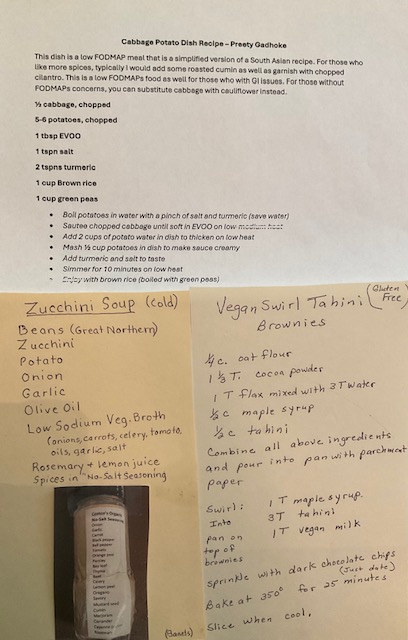 Cabbage Potato Dish Recipe – Preety Gadhoke
This dish is a low FODMAP meal that is a simplified version of a South Asian recipe. For those who
like more spices, typically I would add some roasted cumin as well as garnish with chopped
cilantro. This is a low FODMAPs food as well for those who with GI issues. For those without
FODMAPs concerns, you can substitute cabbage with cauliflower instead.
½ cabbage, chopped
5-6 potatoes, chopped
1 tbsp EVOO
1 tspn salt
2 tspns turmeric
1 cup Brown rice
1 cup green peas
• Boil potatoes in water with a pinch of salt and turmeric (save water)
• Sautee chopped cabbage until soft in EVOO on low medium heat
• Add 2 cups of potato water in dish to thicken on low heat
• Mash ½ cup potatoes in dish to make sauce creamy
• Add turmeric and salt to taste
• Simmer for 10 minutes on low heat
• Enjoy with brown rice (boiled with green peas)
Zucchini Soup (cold)
Beans (Great Northern)
Zucchini
Potato
Onion
Garlic
Olive Oil
Low Sodium Veg. Broth
(onions, carrots, celery, tomato,
oils, garlic, salt
Rosemary + lemon juice
Spices in "No-Salt Seasoning
Organic
No-Salt Seasoning
Onion
Garlic
Carrot
Black pepper
Bell pepper
Tomato
Orange peel
Parsley
Bay leaf
Thyme
Basil
Celery
Lemon peel
Oregano
Savory
Mustard seed
Cumin
Marjoram
Coriander
Cayenne pepper
Rosemary
(Banels)
Vegan Swirl Tahini (Gluten Free)
Brownies
¼ c. oat flour
1 ⅓ T. cocoa powder
1 T flax mixed with 3 T water
½ c maple syrup
½ c tahini
Combine all above ingredients
and pour into pan with parchment
paper
Swirl: 1 T maple syrup.
Into 3T tahini
pan on 1T vegan milk
top of
brownies
Sprinkle with dark chocolate chips
(Just date)
Bake at 350° for 25 minutes
Slice when cool.